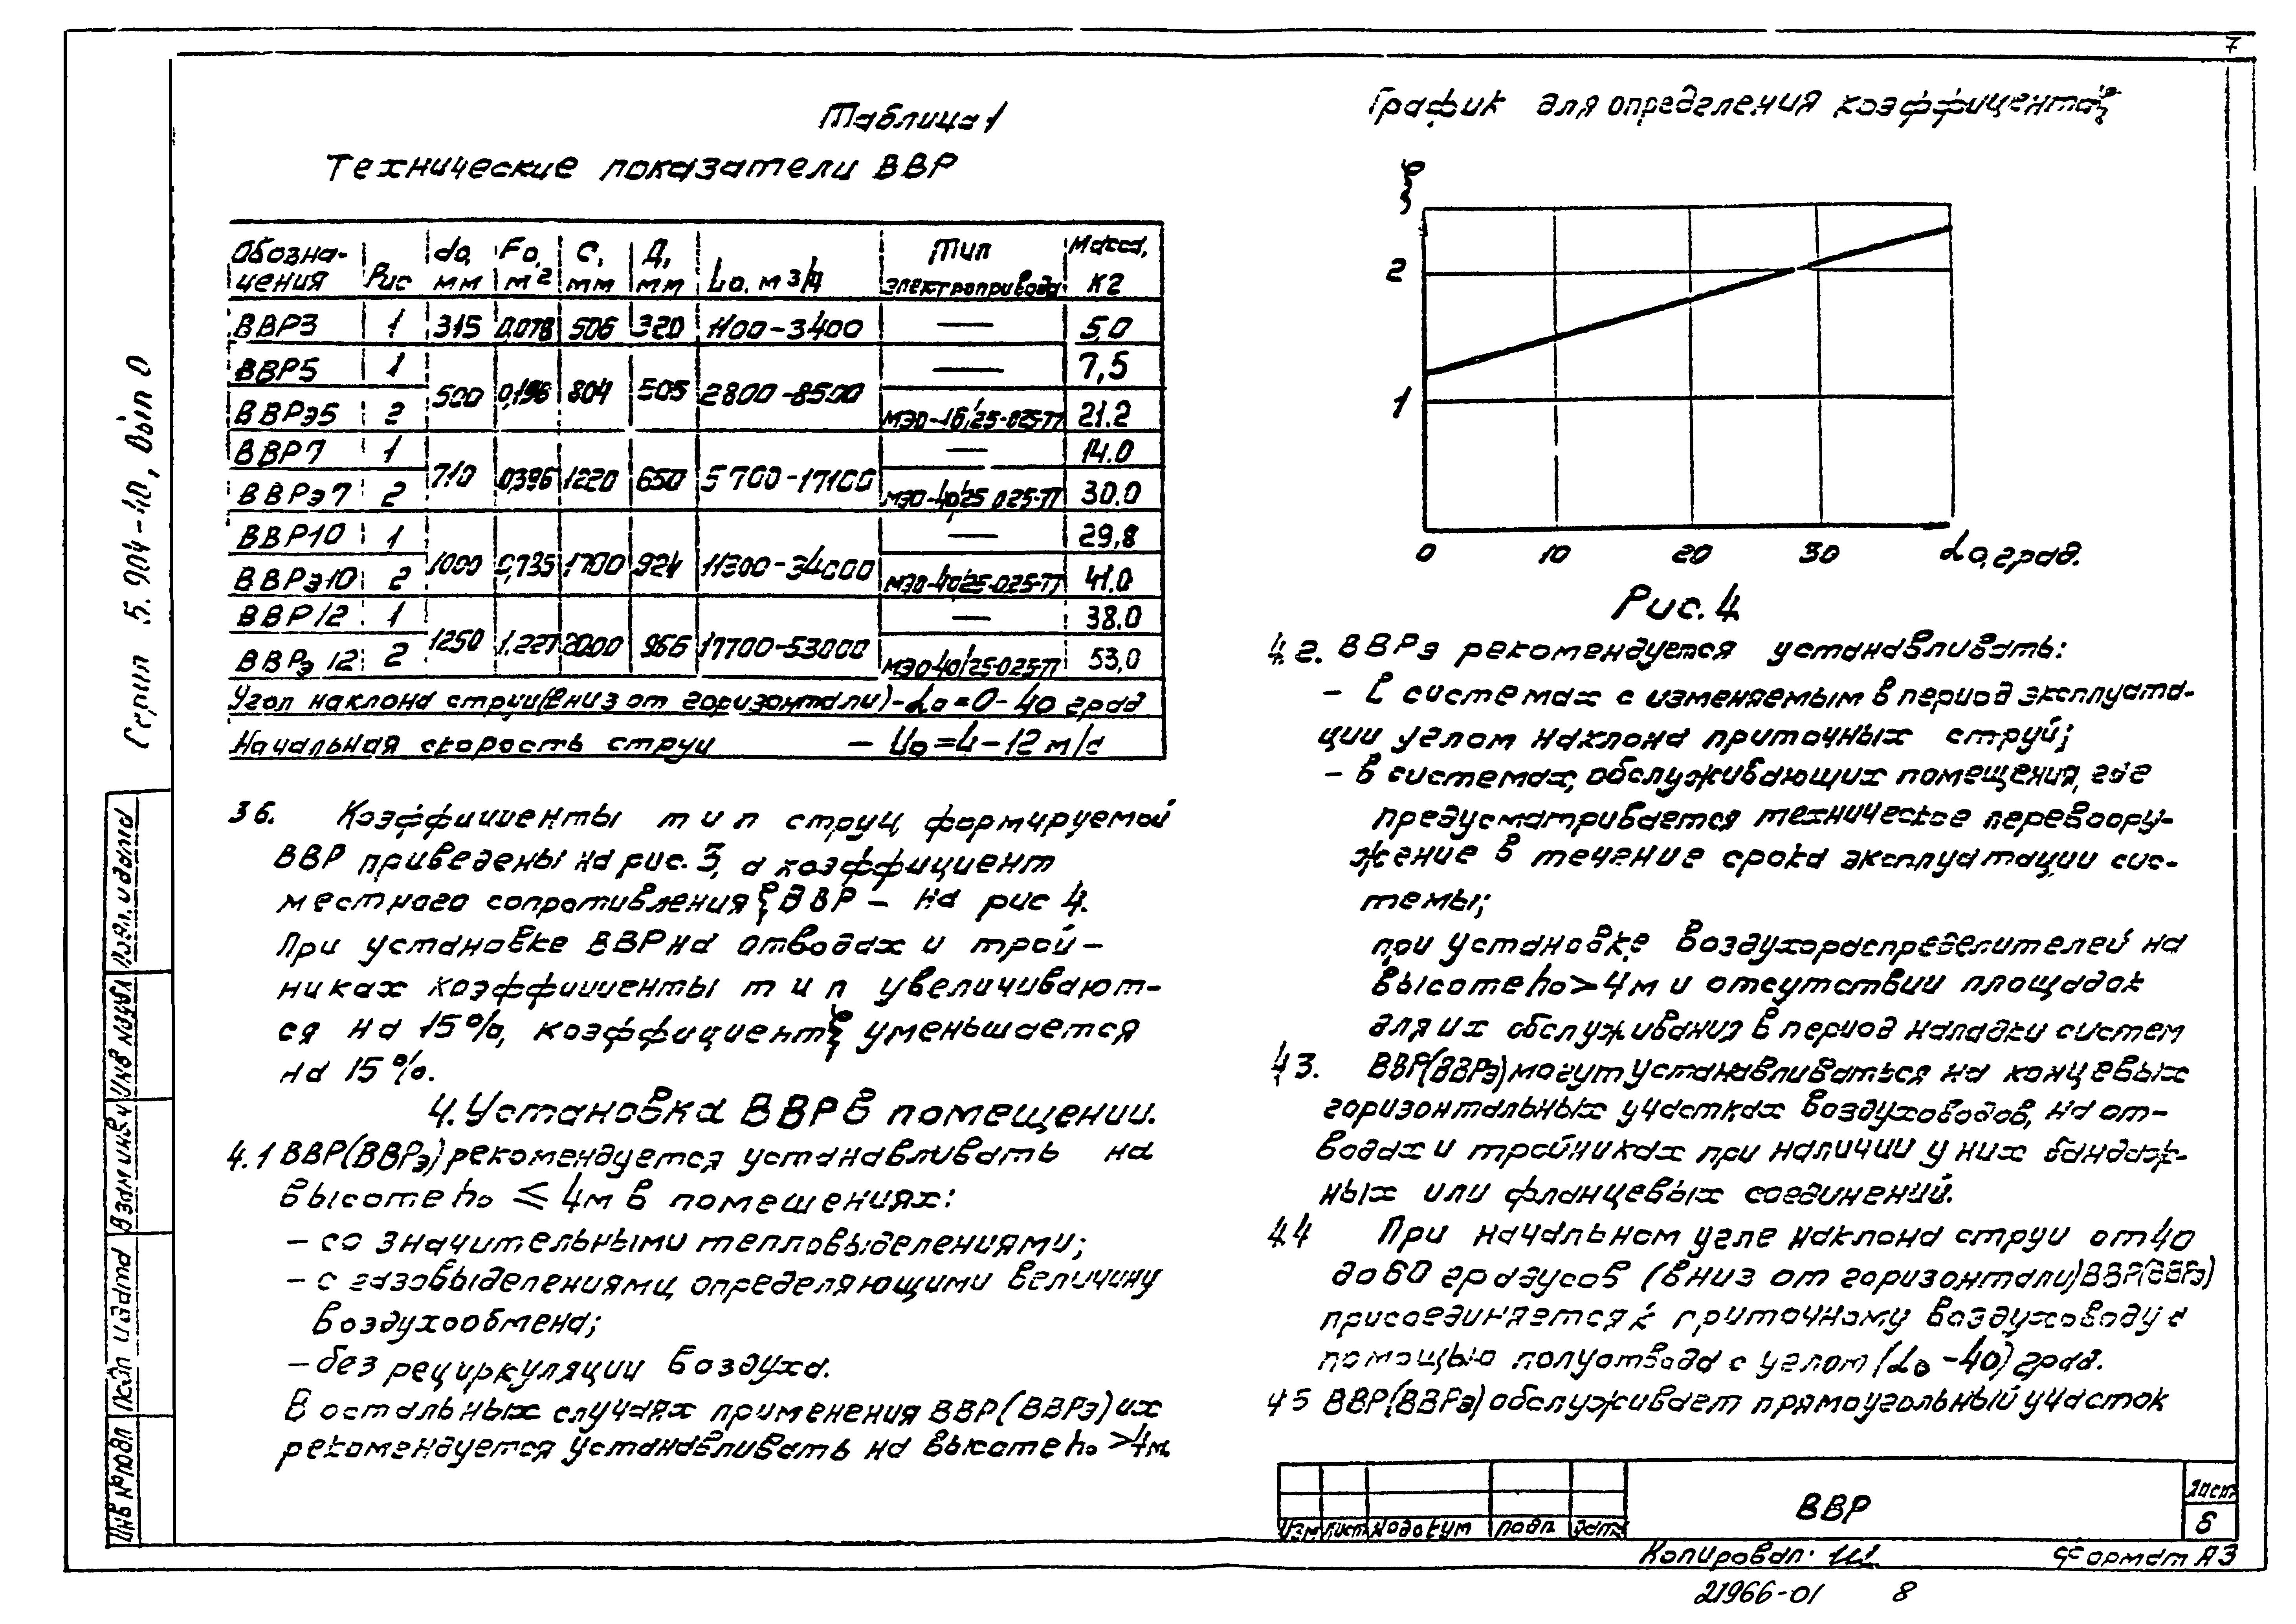 7
Таблица 1
Технические показатели ВВР
Обозна-чения | Рис | do, мм | Fo, м2 | С, мм | Д, мм | Lo, м3/ч | Тип электропривода | Масса, кг
ВВР3 | 1 | 315 | 0,078 | 506 | 320 | 1100-3400 | — | 5,0
ВВР5 | 1 | 500 | 0,196 | 804 | 505 | 2800-8500 | — | 7,5
ВВРэ5 | 2 | МЭО-16/25-0.25-П | 21.2
ВВР7 | 1 | 710 | 0,396 | 1220 | 650 | 5700-17100 | — | 14.0
ВВРэ7 | 2 | МЭО-40/25 0.25-П | 30.0
ВВР10 | 1 | 1000 | 0,735 | 1700 | 924 | 11300-34000 | — | 29,8
ВВРэ10 | 2 | МЭО-40/25-0.25-П | 41.0
ВВР12 | 1 | 1250 | 1.227 | 2000 | 966 | 17700-53000 | — | 38.0
ВВРэ 12 | 2 | МЭО-40/25-0.25-П | 53,0
Угол наклона струи (вниз от горизонтали) - αo = 0-40 град
Начальная скорость струи — Uo = 4-12 м/с
3 6. Коэффициенты m и n струи, формируемой
ВВР приведены на рис. 3, а коэффициент
местного сопротивления ξ ВВР — на рис 4.
При установке ВВР на отводах и трой-
никах коэффициенты m и n увеличивают-
ся на 15%, коэффициент ξ уменьшается
на 15%.
4. Установка ВВР в помещении.
4.1 ВВР(ВВРэ) рекомендуется устанавливать на
высоте ho ≤ 4м в помещениях:
- со значительными тепловыделениями;
- с газовыделениями, определяющими величину
воздухообмена;
- без рециркуляции воздуха.
В остальных случаях применения ВВР(ВВРэ) их
рекомендуется устанавливать на высоте ho > 4м.
График для определения коэффицента ξ
ξ
2
1
0 10 20 30 αo, град.
Рис. 4
4.2. ВВРэ рекомендуется устанавливать:
- в системах с изменяемым в период эксплуата-
ции углом наклона приточных струй;
- в системах, обслуживающих помещения, где
предусматривается техническое перевоору-
жение в течение срока эксплуатации сис-
темы;
при установке воздухораспределителей на
высоте ho > 4м и отсутствии площадок
для их обслуживания в период наладки систем
4 3. ВВР(ВВРэ) могут устанавливаться на концевых
горизонтальных участках воздуховодов, на от-
водах и тройниках при наличии у них бандаж-
ных или фланцевых соединений.
4.4 При начальном угле наклона струи от 40
до 60 градусов (вниз от горизонтали) ВВР(ВВРэ)
присоединяется к приточному воздуховоду с
помощью полуотвода с углом (αo -40) град.
4 5 ВВР(ВВРэ) обслуживает прямоугольный участок
Серия 5.904-40, вып 0
Подп. и дата
Инв № дубл
Взам инв №
Подп и дата
Инв № подл
Изм Лист № докум подп. дата
ВВР
Лист
6
Копировал:
Формат А3
21966-01 8